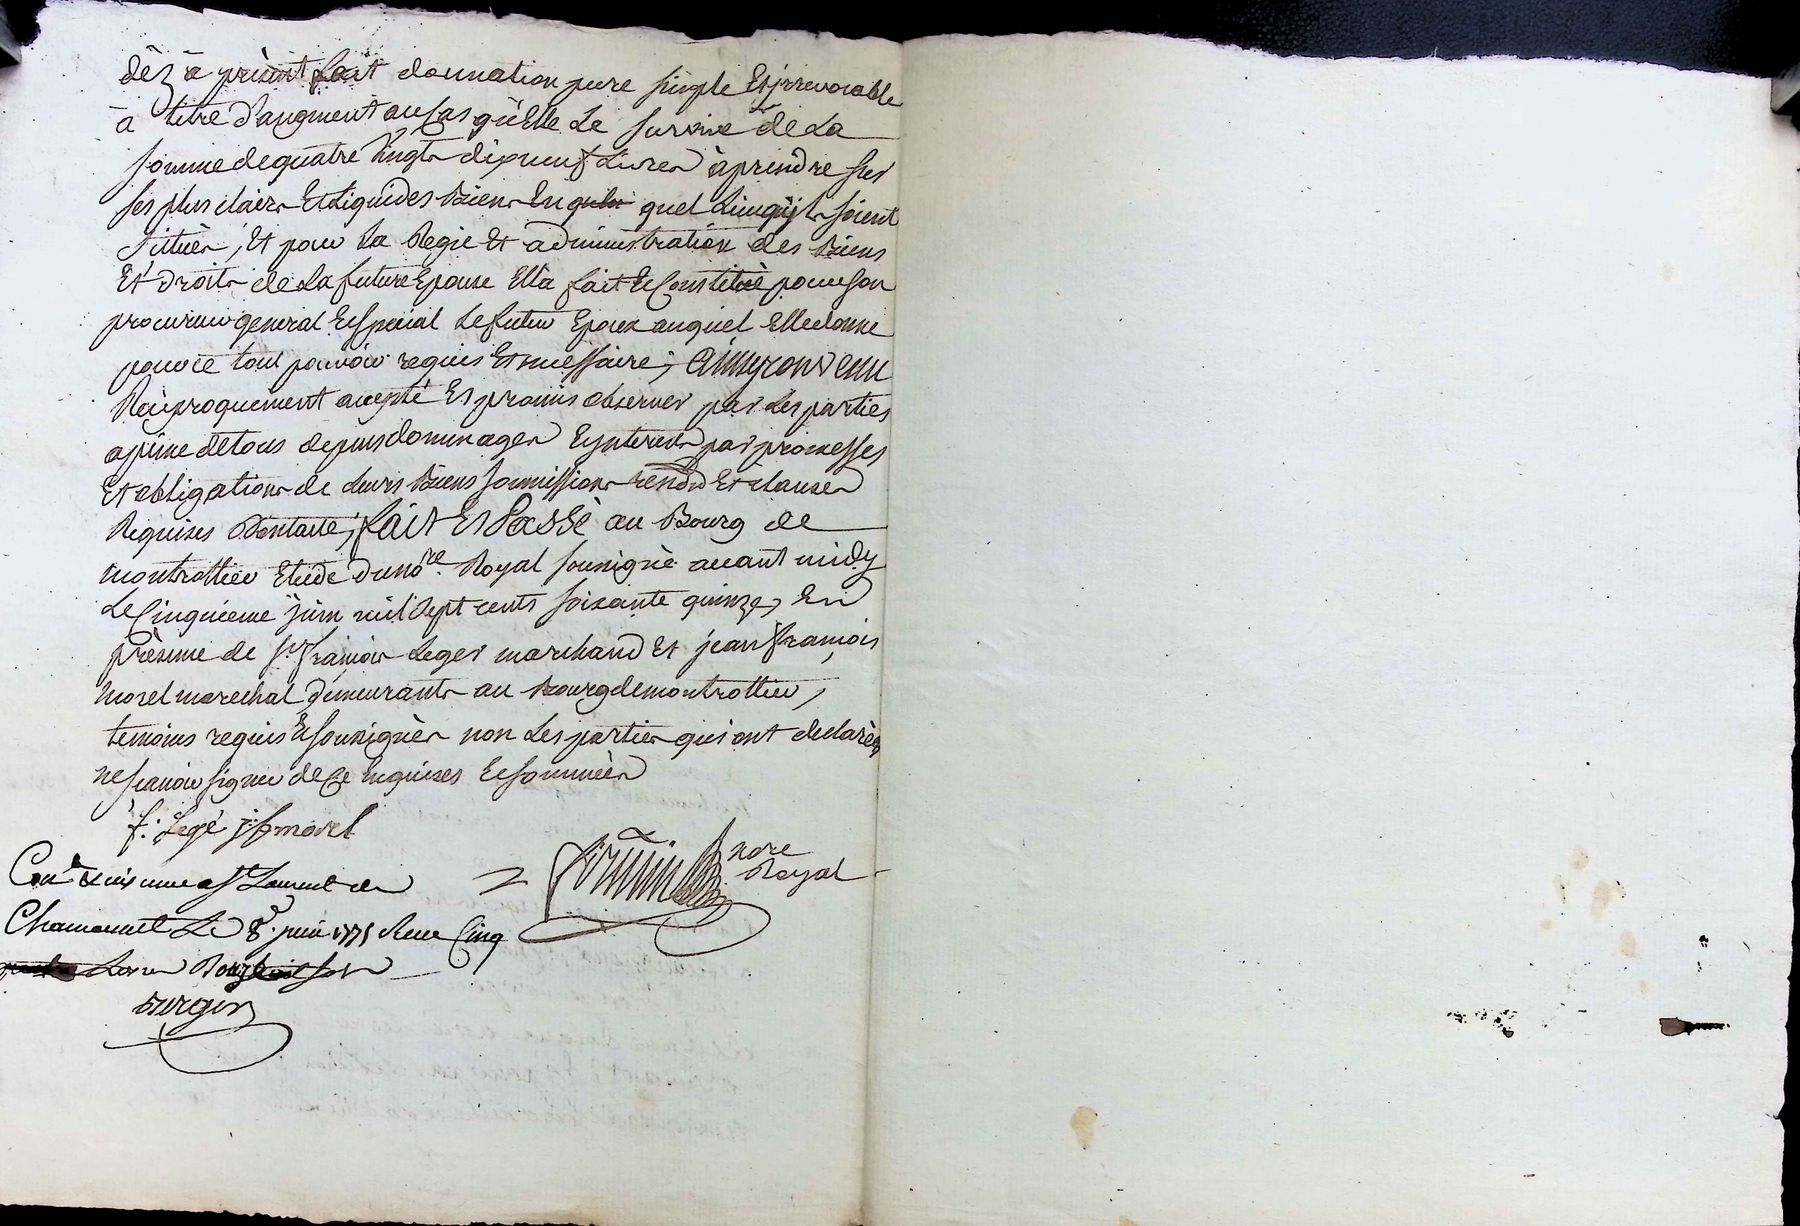 dèz à présent fait donnation pure simple Et jrrevocable
à titre d'augment au Cas qu'Elle Le survive de La
somme de quatre Vingts dixneuf Livres à prendre sur
ses plus clairs Et Liquides Biens En quel Lieu qu'jls soient
situés, Et pour La Regie Et administration des Biens
Et droits de La future Epouse Ella fait Et Constitué pour son
procureur general Et special Le futur Epoux auquel Elle donne
pour ce tout pouvoir requis Et necessaire; Ainsy Convenu
Reciproquement accepté Et promis observer par Les parties
a peine de tous depens dommages Et jnterests par promesses
Et obligations de Leurs Biens soumissions renon Et clauses
Requises fait Et Passé au Bourg de
montrottier Etude du nore Royal sousigné avant midy
Le Cinquieme juin mil sept cents soixante quinze, En
présence de sr françois Leger marchand Et jean françois
morel marechal demeurants au Bourg de montrottier,
temoins requis Et sousignés non Les parties qui ont declarés
ne scavoir signer de Ce Enquises Et sommées
f. Legé j f morel
nore
Royal
Con a St Laurent de
Chamousset Le 8 juin 1775 Reçu Cinq
Livres